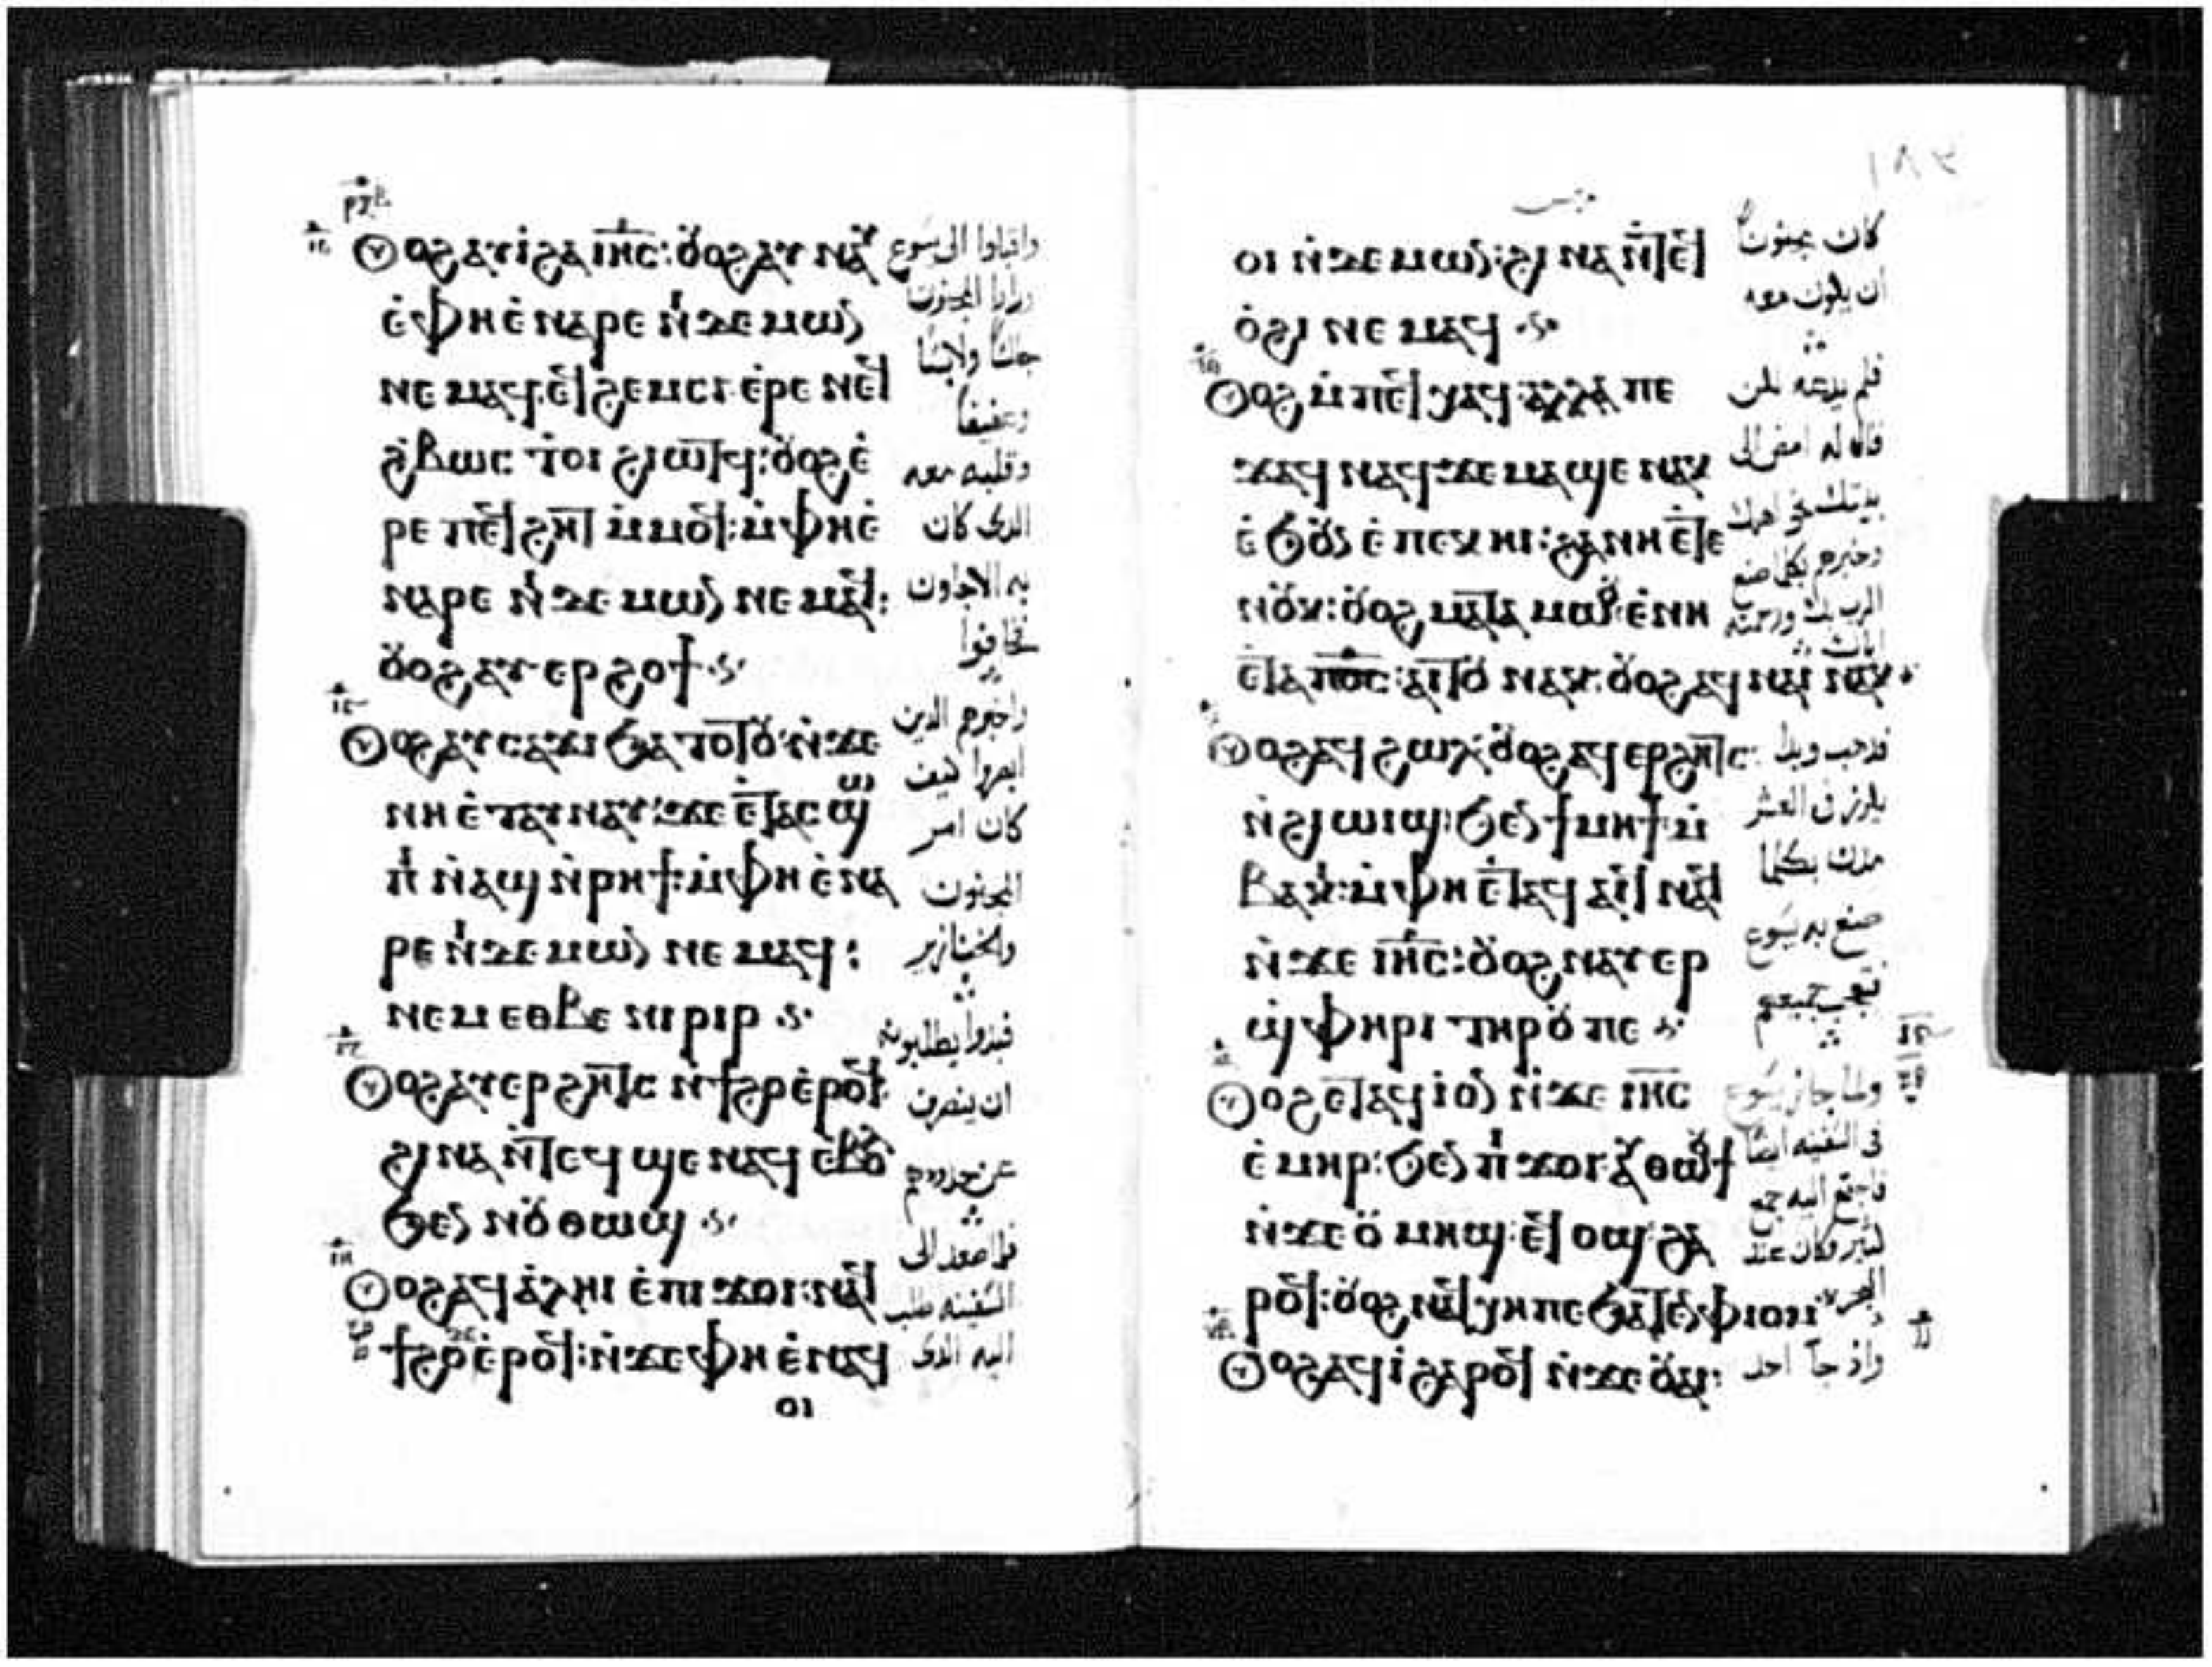 ⲟⲩⲟϩ ⲁⲩⲓ̀ ϩⲁ ⲓⲏ̅ⲥ̅: ⲟⲩⲟϩ ⲁⲩⲛⲁⲩ
ⲉ̀ⲫⲏ ⲉ̀ⲛⲁⲣⲉ ⲛⲓⲇⲉⲙⲱⲛ
ⲛⲉⲙⲁϥ ⲉϥϩⲉⲙⲥⲓ ⲉ̀ⲣⲉ ⲛⲉϥ
ϩ̀ⲃⲱⲥ ⲧⲟⲓ ϩⲓⲱⲧϥ: ⲟⲩⲟϩ ⲉ̀
ⲣⲉ ⲡⲉϥϩⲏⲧ ⲙ̀ⲙⲟϥ: ⲙ̀ⲫⲏ ⲉ̀
ⲛⲁⲣⲉ ⲛⲓⲇⲉⲙⲱⲛ ⲛⲉⲙⲁϥ:
ⲟⲩⲟϩ ⲁⲩⲉⲣϩⲟϯ
ⲟⲩⲟϩ ⲁⲩⲥⲁϫⲓ ϧⲁⲧⲟⲧⲟⲩ ⲛ̀ϫⲉ
ⲛⲏ ⲉ̀ⲧⲁⲩⲛⲁⲩ: ϫⲉ ⲉⲧⲁⲥϣⲱ
ⲡⲓ ⲛ̀ⲁϣ ⲛ̀ⲣⲏϯ: ⲙ̀ⲫⲏ ⲉ̀ⲛⲁ
ⲣⲉ ⲛⲓⲇⲉⲙⲱⲛ ⲛⲉⲙⲁϥ:
ⲛⲉⲙ ⲉⲑⲃⲉ ⲛⲓⲣⲓⲣ
ⲟⲩⲟϩ ⲁⲩⲉⲣϩⲏⲧⲥ ⲛ̀ϯϩⲟ ⲉ̀ⲣⲟϥ
ϩⲓⲛⲁ ⲛ̀ⲧⲉϥϣⲉⲛⲁϥ ⲉⲃⲟⲗ
ϧⲉⲛ ⲛⲟⲩⲑⲱϣ
ⲟⲩⲟϩ ⲁϥⲁ̀ⲗⲏⲓ ⲉ̀ⲡⲓϫⲟⲓ: ⲛⲁϥ
ϯϩⲟ ⲉ̀ⲣⲟϥ: ⲛ̀ϫⲉ ⲫⲏ ⲉ̀ⲛⲁϥ
ⲟⲓ
واقبلوا الى يسوع
وراوا المجنون
جالسًا ولابسًا
وعفيفًا
وقلبه معه
الدى كان
به الاجاون
فخافوا
واخبرهم الدين
ابصروا كيف
كان امر
المجنون
والخنازير
فبدوا يطلبون
ان ينصرف
عن حدودهم
فلما صعد الى
السفينه طلب
اليه الدى
ⲟⲓ ⲛ̀ⲇⲉⲙⲱⲛ: ϩⲓⲛⲁ ⲛ̀ⲧⲉϥ
ⲟ̀ϩⲓ ⲛⲉⲙⲁϥ
ⲟⲩⲟϩ ⲙ̀ⲡⲉϥⲭⲁϥ ⲁⲗⲗⲁ ⲡⲉ
ϫⲁϥ ⲛⲁϥ ϫⲉ ⲙⲁϣⲉ ⲛⲁⲕ
ⲉ̀ϧⲟⲩⲛ ⲉ̀ⲡⲉⲕⲏⲓ: ϩⲁ ⲛⲏ ⲉⲧⲉ
ⲛⲟⲩⲕ: ⲟⲩⲟϩ ⲙⲁⲧⲁⲙⲱⲟⲩ ⲉ̀ⲛⲏ
ⲉⲧⲁ ⲡⲟ̅ⲥ̅: ⲁⲓⲧⲟⲩ ⲛⲁⲕ: ⲟⲩⲟϩ ⲁϥⲛⲁⲓ ⲛⲁⲕ
ⲟⲩⲟϩ ⲁϥϩⲱⲗ: ⲟⲩⲟϩ ⲁϥⲉⲣϩⲏⲧⲥ
ⲛ̀ϩⲓⲱⲓϣ: ϧⲉⲛ ϯⲙⲏϯ ⲙ̀
ⲃⲁⲕⲓ: ⲙ̀ⲫⲏ ⲉⲧⲁϥⲁⲓϥ ⲛⲁϥ
ⲛ̀ϫⲉ ⲓⲏ̅ⲥ̅: ⲟⲩⲟϩ ⲛⲁⲩⲉⲣ
ϣ̀ⲫⲏⲣⲓ ⲧⲏⲣⲟⲩ ⲡⲉ
ⲟⲩⲟϩ ⲉⲧⲁϥⲓ̀ⲟⲣ ⲛ̀ϫⲉ ⲓⲏ̅ⲥ̅
ⲉ̀ⲙⲏⲣ: ϧⲉⲛ ⲡⲓϫⲟⲓ: ⲁⲩⲑⲱⲟⲩϯ
ⲛ̀ϫⲉ ⲟⲩⲙⲏϣ: ⲉϥⲟϣ: ϩⲁ
ⲣⲟϥ: ⲟⲩⲟϩ ⲛⲁϥⲭⲏ ⲡⲉ ϧⲁⲧⲉⲛ ⲫⲓⲟⲙ
ⲟⲩⲟϩ ⲁϥⲓ̀ ϩⲁⲣⲟϥ ⲛ̀ϫⲉ ⲟⲩⲁⲓ:
كان مجنون
ان يكون معه
فلم يدعه لكن
قال له امض الى
بيتك نحو اهلك
وخبرهم بكلما صنع
الرب بك ورحمته
اياك
فدهب وبدا
يكرز فى العشر
مدن بكلما
صنع به يسوع
فتعجب جميعهم
ولما جاز يسوع
فى السفينه ايضًا
فاجتمع اليه جمع
كثير وكان عند
البحر
واذ جآ احد